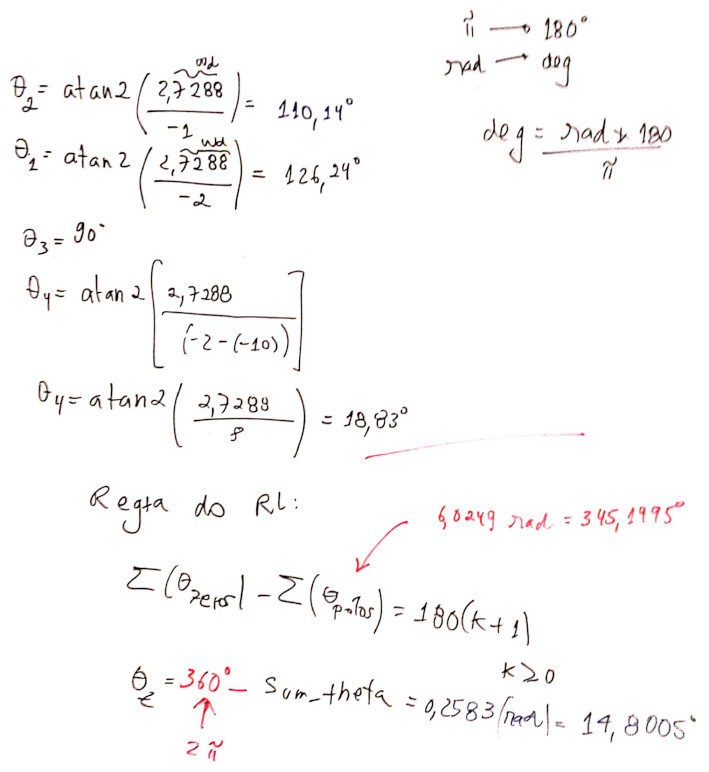 π → 180°
rad → deg
deg = rad * 180 / π
ωd
θ₂ = atan2 (2,7288 / -1) = 110,14°
ωd
θ₁ = atan2 (2,7288 / -2) = 126,24°
θ₃ = 90°
θ₄ = atan2 [2,7288 / (-2-(-10))]
θ₄ = atan2 (2,7288 / 8) = 18,83°
Regra do RL:
6,0249 rad = 345,1995°
Σ(θzeros) - Σ(θpolos) = 180(k+1)
k≥0
= 360° - Sum_theta = 0,2583 (rad) = 14,8005°
↑
2π